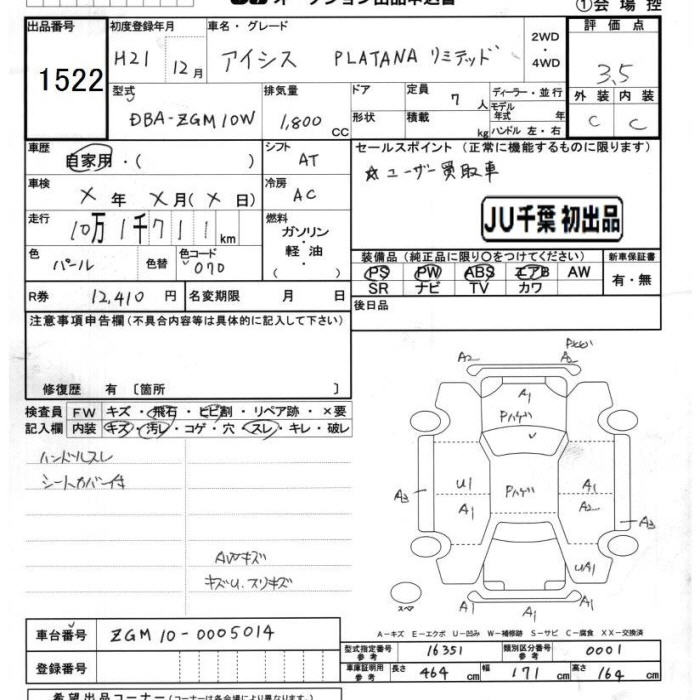 ①会場控
出品番号 初度登録年月 車名・グレード 2WD ・ 4WD 評価点
1522 H21 12月 アイシス PLATANA リミテッド 3.5
型式 排気量 ドア 定員 7人 ディーラー・並行 外装 内装
DBA-ZGM10W 1,800 CC 形状 積載 kg モデル年式 年 ハンドル 左・右 C C
車歴 自家用・( ) シフト AT セールスポイント (正常に機能するものに限ります)
☆ユーザー買取車
車検 X年 X月(X日) 冷房 AC
JU千葉 初出品
走行 10万1千711km 燃料 ガソリン・軽油・( )
色 パール 色替 色コード 070
装備品 (純正品に限り〇をつけてください) 新車保証書
PS PW ABS エアB AW 有・無
SR ナビ TV カワ
R券 12,410円 名変期限 月 日 後日品
注意事項申告欄 (不具合内容等は具体的に記入して下さい)
修復歴 有 [箇所 ]
検査員 FW キズ・飛石・ヒビ割・リペア跡・×要
記入欄 内装 キズ・汚レ・コゲ・穴・スレ・キレ・破レ
ハンドルスレ
シートカバー付
AWキズ
キズU.スリキズ
A2 A2
A1
Pハゲ
U1 Pハゲ A1
A3 A1 A2 A3
UA1
スペア A1 A1
A-キズ E-エクボ U-凹み W-補修跡 S-サビ C-腐食 XX-交換済
車台番号 ZGM10-0005014
型式指定番号 参考 16351 類別区分番号 参考 0001
登録番号 車庫証明用 参考 長さ 464cm 幅 171cm 高さ 164cm
希望出品コーナー (コーナーは各会場により異なります。)